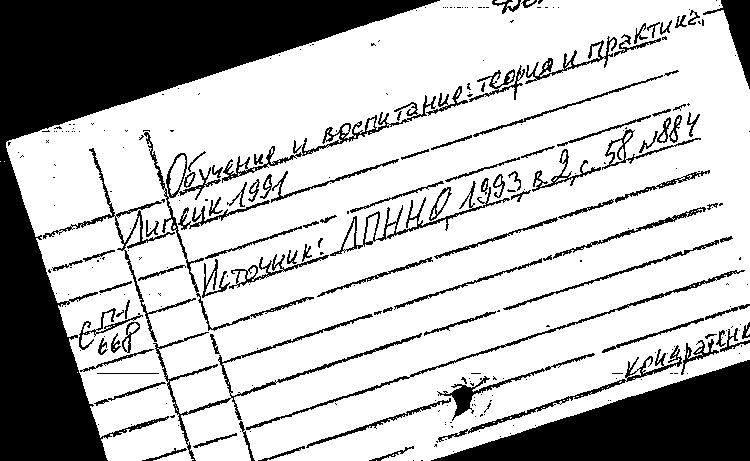 Обучение и воспитание: теория и практика,
Липецк, 1991
Источник: ЛПННО, 1993, в. 2, с. 58, №884
С П-1/668